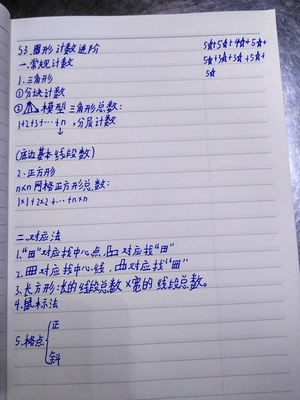 S3.图形计数进阶
5☆+5☆+4☆+5☆+
5☆+3☆+3☆+5☆+
5☆
一.常规计数
1.三角形
①分块计数
②模型三角形总数:
1+2+3+…+n,分层计数
↓
(底边基本线段数)
2.正方形
n×n网格正方形总数:
1×1+2×2+…+n×n
二.对应法
1."田"对应找中心点,凸对应找"田"
2.田对应找中心线,凸对应找"田"
3.长方形:长的线段总数×宽的线段总数。
4.鼠标法
5.格点{正
斜